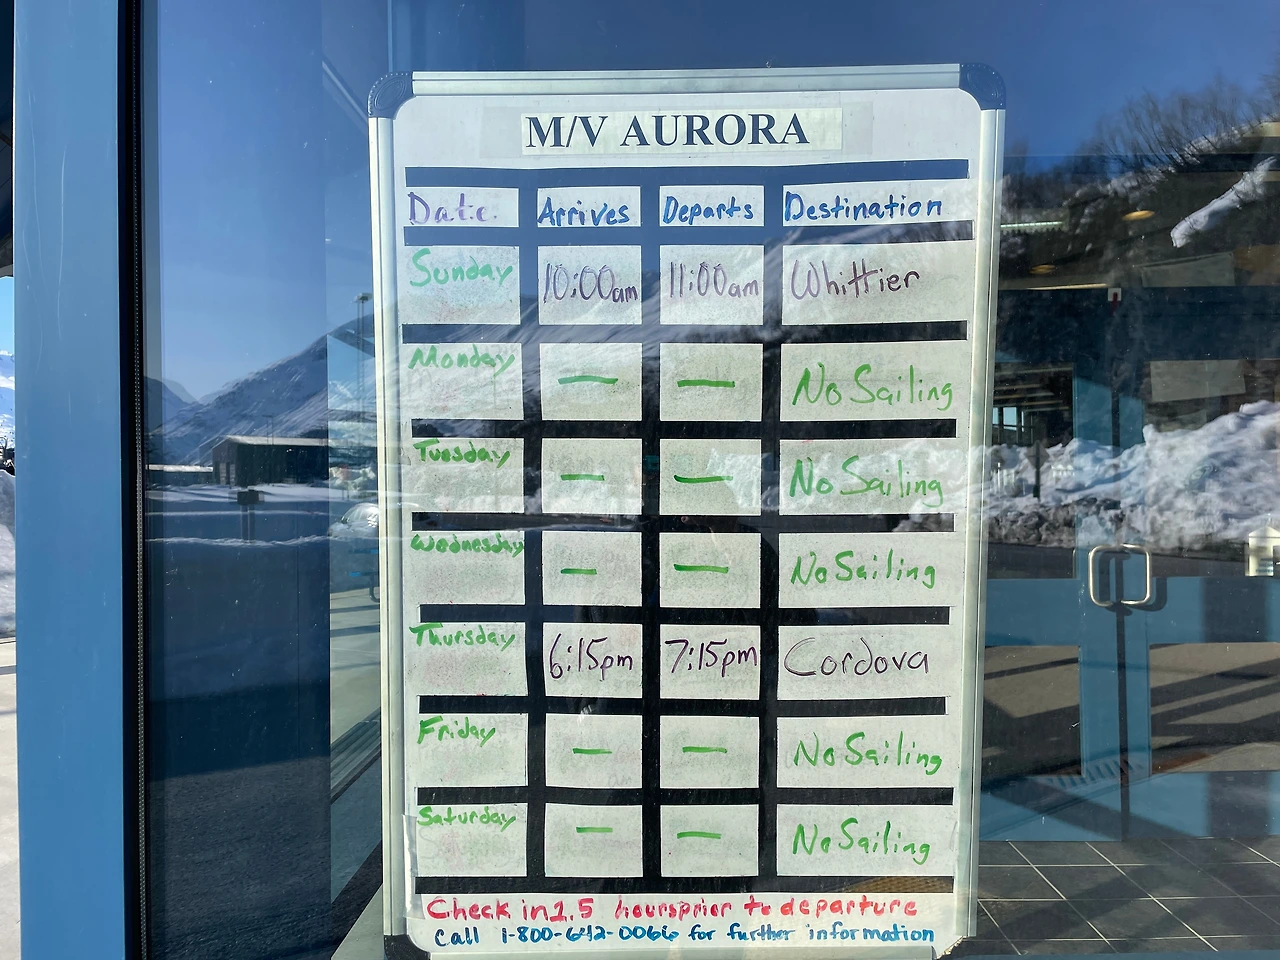 M/V AURORA
Date Arrives Departs Destination
Sunday 10:00am 11:00am Whittier
Monday — — No Sailing
Tuesday — — No Sailing
Wednesday — — No Sailing
Thursday 6:15pm 7:15pm Cordova
Friday — — No Sailing
Saturday — — No Sailing
Check in 1.5 hours prior to departure
Call 1-800-642-0066 for further information